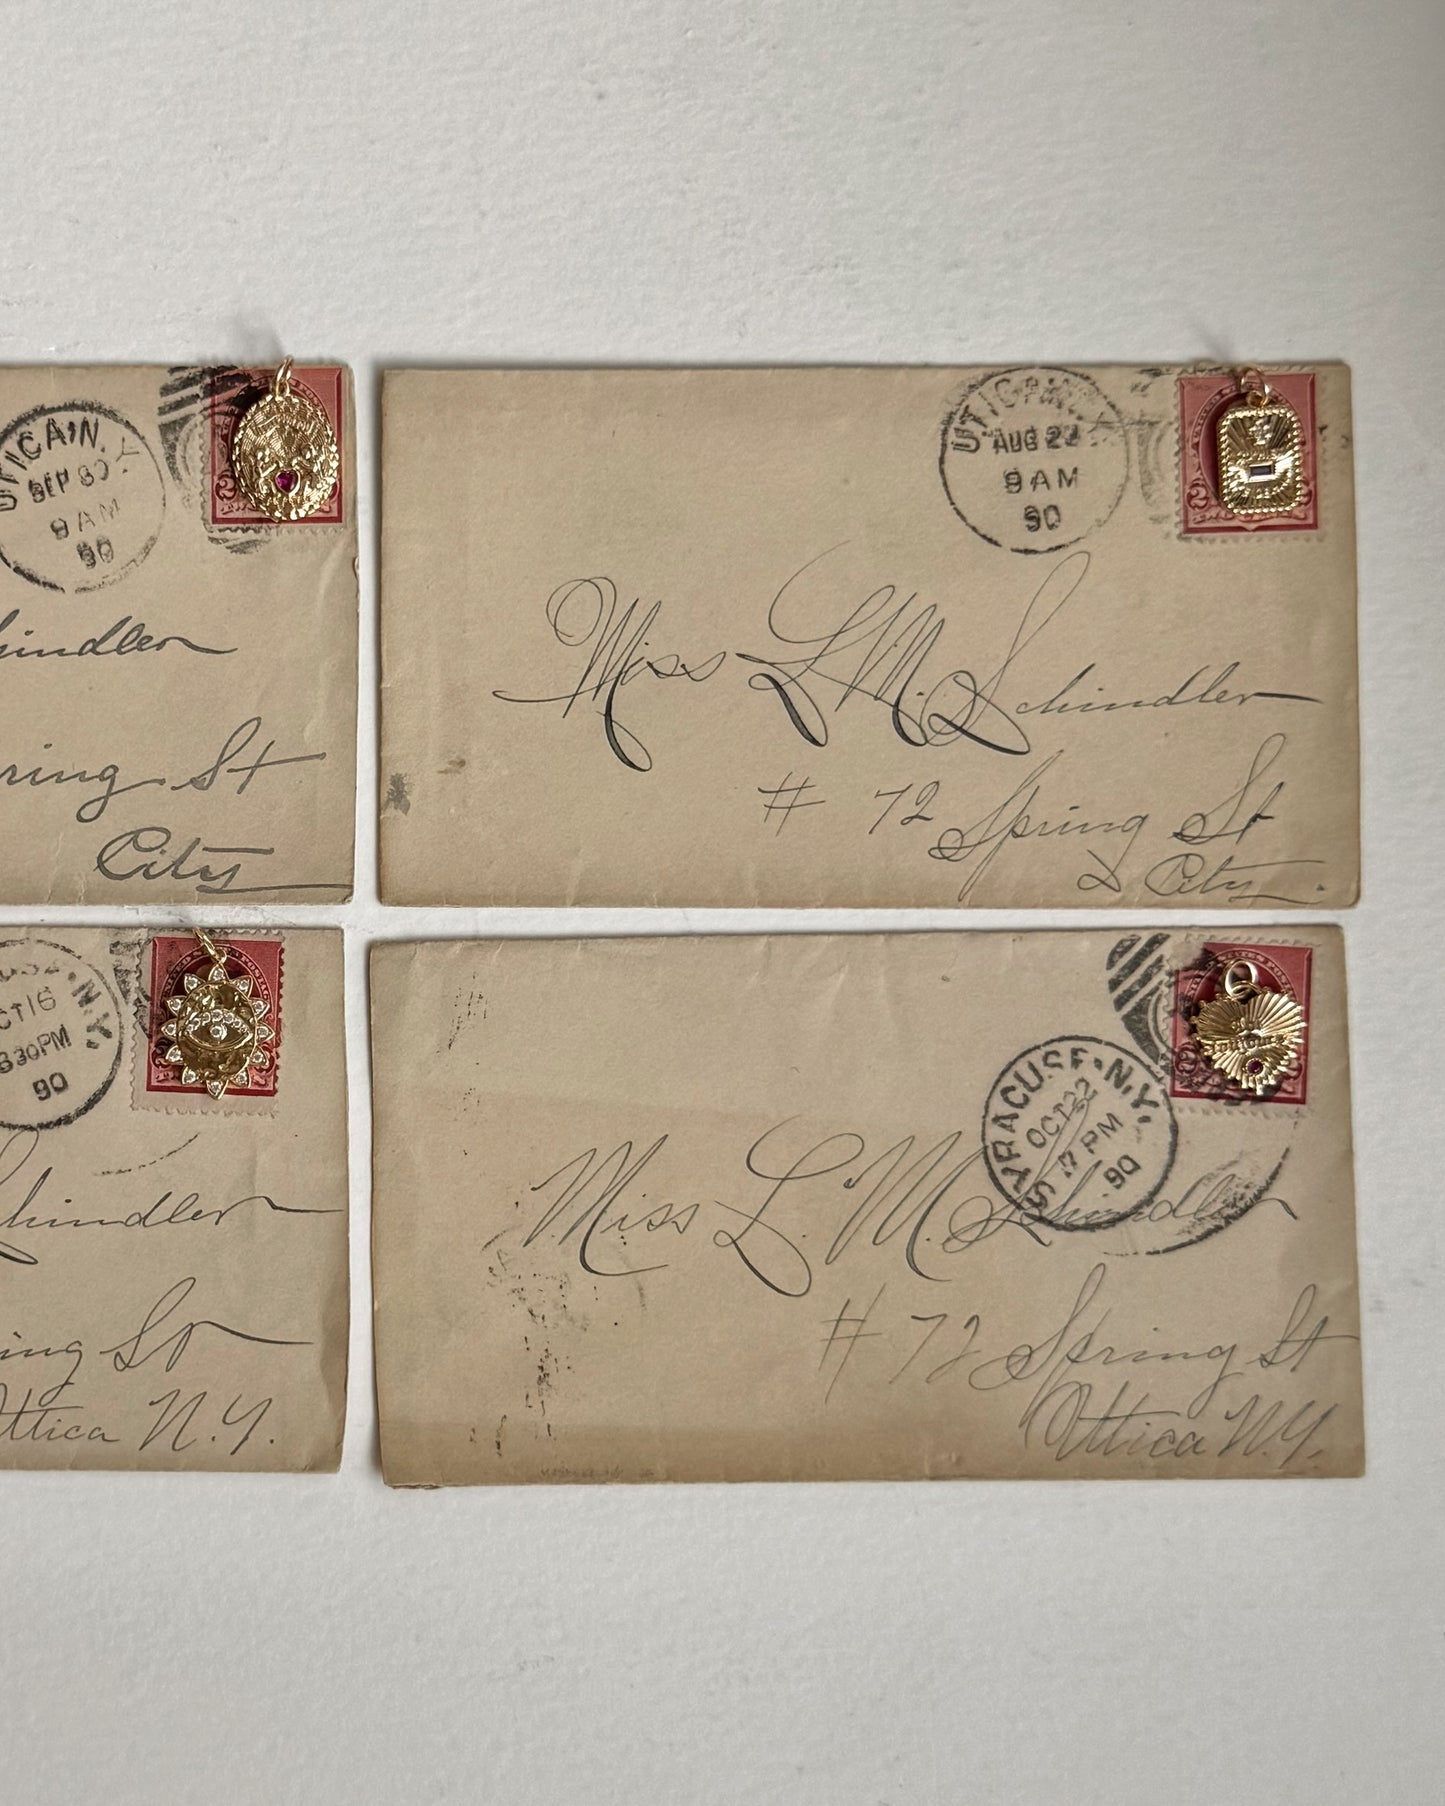 UTICA, N.Y.
SEP 30
9 AM
90
hindler
ring St
City
UTICA, N.Y.
AUG 22
9 AM
90
2
2
Miss L M. Schindler
# 72 Spring St
City.
USE, N.Y.
CT 16
830PM
90
UNITED STATES POSTAGE
hindler
ing St
Uttica N.Y.
SYRACUSE, N.Y.
OCT 22
7 PM
90
2
Miss L. M. Schindler
# 72 Spring St
Uttica N.Y.